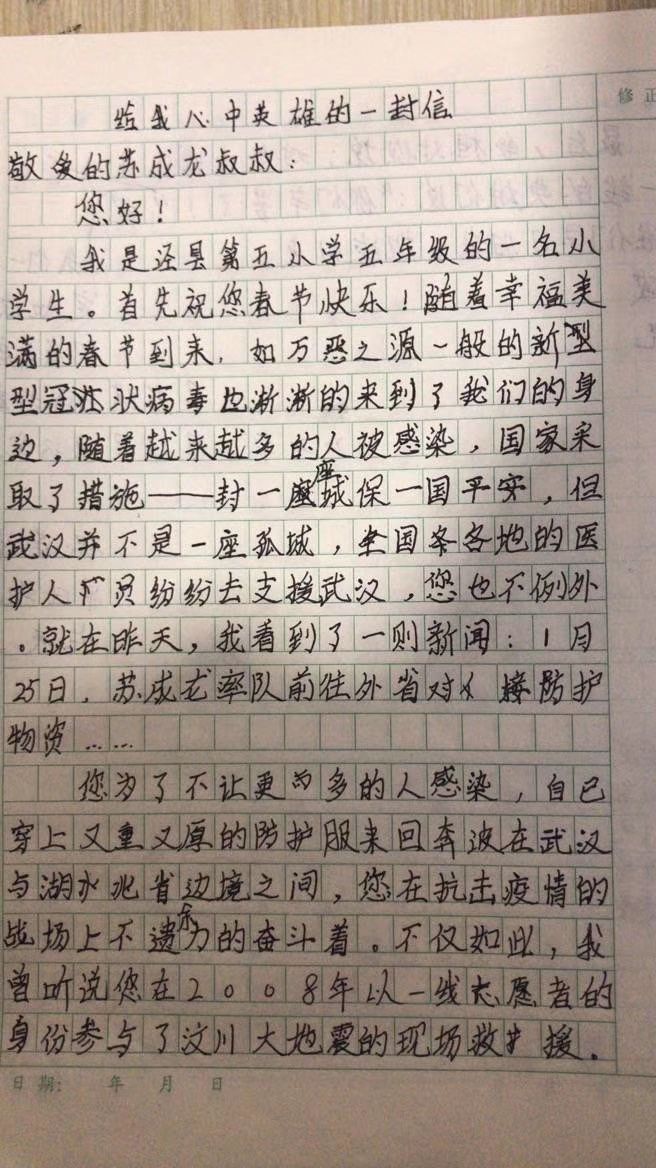 给我心中英雄的一封信
修正
敬爱的苏成龙叔叔:
您好!
我是泾县第五小学五年级的一名小
学生。首先祝您春节快乐!随着幸福美
满的春节到来,如万恶之源一般的新型
型冠状病毒也渐渐的来到了我们的身
边,随着越来越多的人被感染,国家采
取了措施——封一座城保一国平安,但
武汉并不是一座孤城,全国各地的医
护人员纷纷去支援武汉,您也不例外
。就在昨天,我看到了一则新闻:1月
25日,苏成龙率队前往外省对接防护
物资……
您为了不让更多的人感染,自己
穿上又重又厚的防护服来回奔波在武汉
与湖北省边境之间,您在抗击疫情的
战场上不遗余力的奋斗着。不仅如此,我
曾听说您在2008年以一线志愿者的
身份参与了汶川大地震的现场救援。
日期: 年 月 日